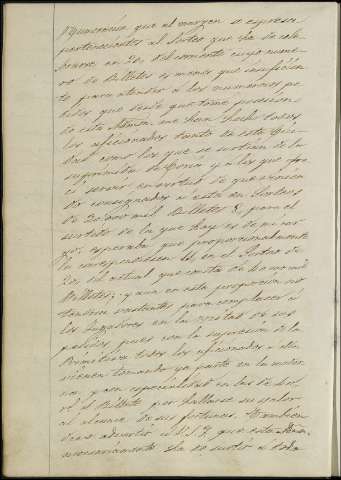 Numeración que al margen se espresa
pertenecientes al Sorteo que ha de cele
brarse en 20,, del corriente cuyo nume
ro de Billetes es menos que insuficien
te para atender a los numerosos pe
didos que desde que tomé posesion
de esta Admon. me han hecho todos
los aficionados tanto de esta Ciu
dad como los que se surtian de la
suprimida de Coria y a los que pre
ciso
en virtud de que vinien
do consignados a esta en Sorteos
de 20,, mil Billetes 8, para el
surtido de la que hoy es de mi car
go, esperaba que proporcionalmente
la correspondiesen 16, en el Sorteo de
20,, del actual que consta de 40,, mil
Billetes; y aun en esta proporcion no
tendria bastantes para complacer a
los Jugadores en la mitad de sus
pedidos, pues con la supresion de la
Primitiva todos los aficionados a ella
vienen tomando ya parte en la moder
na, y con especialidad en las de
el Billete por hallarse su valor
al alcance de sus fortunas. Tambien
devo advertir a V.S.Y. que esta Admon.
necesariamente ha de surtir a toda